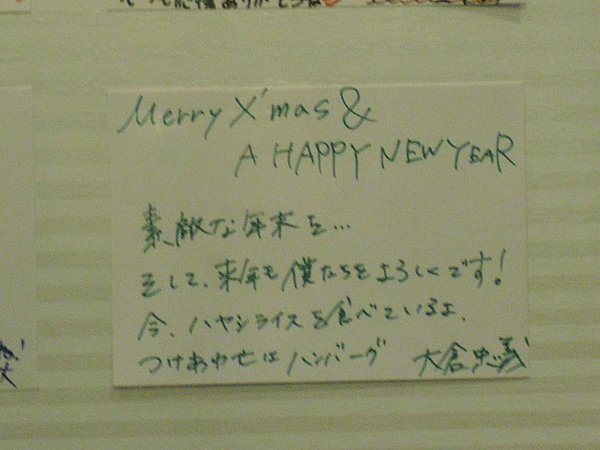 Merry X'mas &
A HAPPY NEW YEAR
素敵な年末を…
そして、来年も僕たちをよろしくです!
今、ハヤシライスを食べているよ、
つけあわせはハンバーグ 大倉忠義